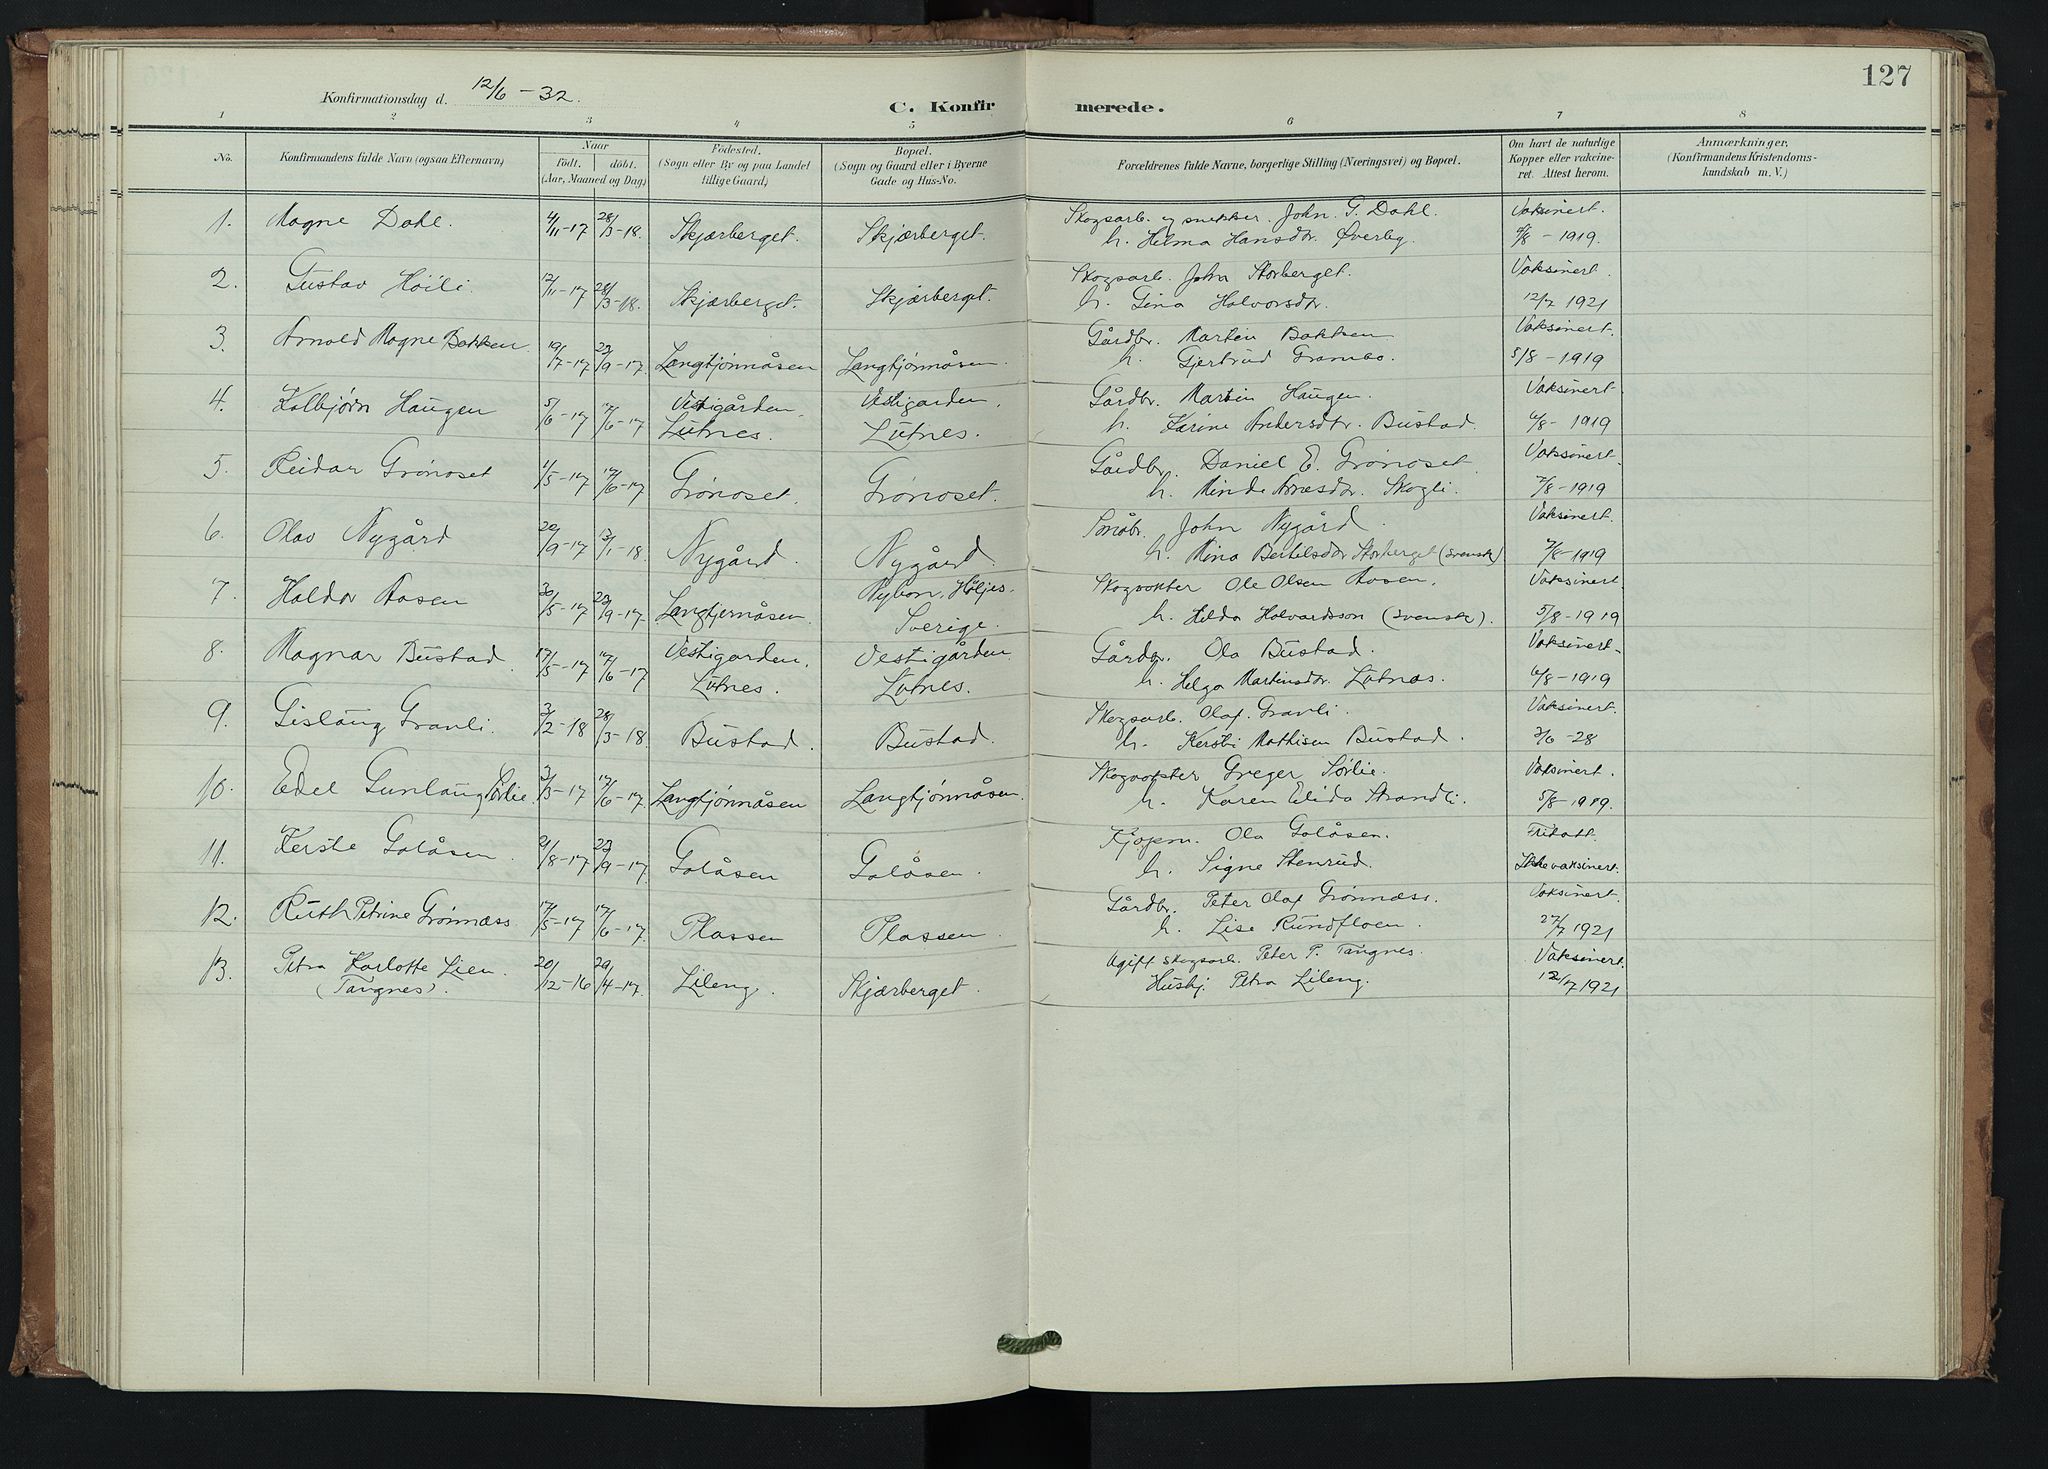 127
Konfirmationsdag d. 12/6 - 32.
C. Konfirmerede.
1 2 3 4 5 6 7 8
No. Konfirmandens fulde Navn (ogsaa Efternavn) Naar født. døbt. (Aar, Maaned og Dag) Fødested. (Sogn eller By og paa Landet tillige Gaard) Bopæl. (Sogn og Gaard eller i Byerne Gade og Hus-No. Forældrenes fulde Navne, borgerlige Stilling (Næringsvei) og Bopæl. Om havt de naturlige Kopper eller vakcineret. Attest herom. Anmærkninger, (Konfirmandens Kristendomskundskab m. V.)
1. Magne Dahl. 4/11-17 28/3-18. Skjærberget. Skjærberget. Skogsarb. og snekker. John. G. Dahl. Vaksinert.
h. Helma Hansdtr. Øverby. /8 - 1919.
2. Gustav Høili. 12/11-17 28/3-18. Skjærberget. Skjærberget. Skogsarb. John Storberget. Vaksinert.
h. Gina Halvorsdtr. 12/7 1921
3. Arnold Magne Bakken. 19/7-17 23/9-17. Langtjønnåsen Langtjønnåsen. Gårdbr. Martin Bakken Vaksinert.
h. Gjertrud Grambo. 5/8 - 1919
4. Kolbjørn Haugen 5/6-17 17/6-17 Vestigården, Vestigarden, Gårdbr. Martin Haugen. Vaksinert
Lutnes. Lutnes. h. Karine Andersdtr. Bustad. 6/8 - 1919
5. Reidar Grønoset 1/5-17 17/6-17 Grønoset. Grønoset. Gårdbr. Daniel E. Grønoset. Vaksinert
h. Minda Arnesdtr. Skogli. 7/8 - 1919
6. Olav Nygård 20/9-17 13/1-18. Nygård. Nygård. Småbr. John Nygård. Vaksinert.
h. Mina Bertilsdtr Storberget (svensk) 7/8-1919
7. Haldor Aasen 30/5-17 23/9-17 Langtjernåsen. Nybon, Höljes. Skogvokter Ole Olsen Aasen. Vaksinert
Sverige. h. Hilda Halvardsson (svensk). 5/8 - 1919
8. Magnar Bustad. 17/5-17 17/6-17 Vestigarden. Vestigården Gårdbr. Ola Bustad. Vaksinert
Lutnes. Lutnes. h. Helga Martinsdtr. Lutnæs. 6/8 - 1919
9. Gislaug Granli. 3/2-18 28/3-18. Bustad. Bustad. Skogsarb. Olaf. Granli. Vaksinert.
h. Kersti Mathisen Bustad. 3/6 -28
10. Edel Gunlaug Sørlie. 3/3-17 17/6-17. Langtjønnåsen Langtjønnåsen. Skogvokter Greger Sørlie. Vaksinert.
h. Karen Elida Strandli. 5/8 - 1919.
11. Kerste Galåsen. 21/8-17 23/9-17. Galåsen Galåsen. Kjøpm. Ola Galåsen. Fritatt
h. Signe Stenrud. Ikke vaksinert.
12. Ruth Petrine Grønnæss 17/5-17 17/6-17. Plassen Plassen. Gårdbr. Peter Olaf Grønnæss. Vaksinert
h. Lise Rundfloen. 27/7 1921
13. Petra Karlotte Lien. 20/12-16 29/4-17. Lileng. Skjærberget. Ugift skogsarb. Peter P. Tangnes. Vaksinert.
(Tangnes). Hushj. Petra Lileng. 12/7 1921